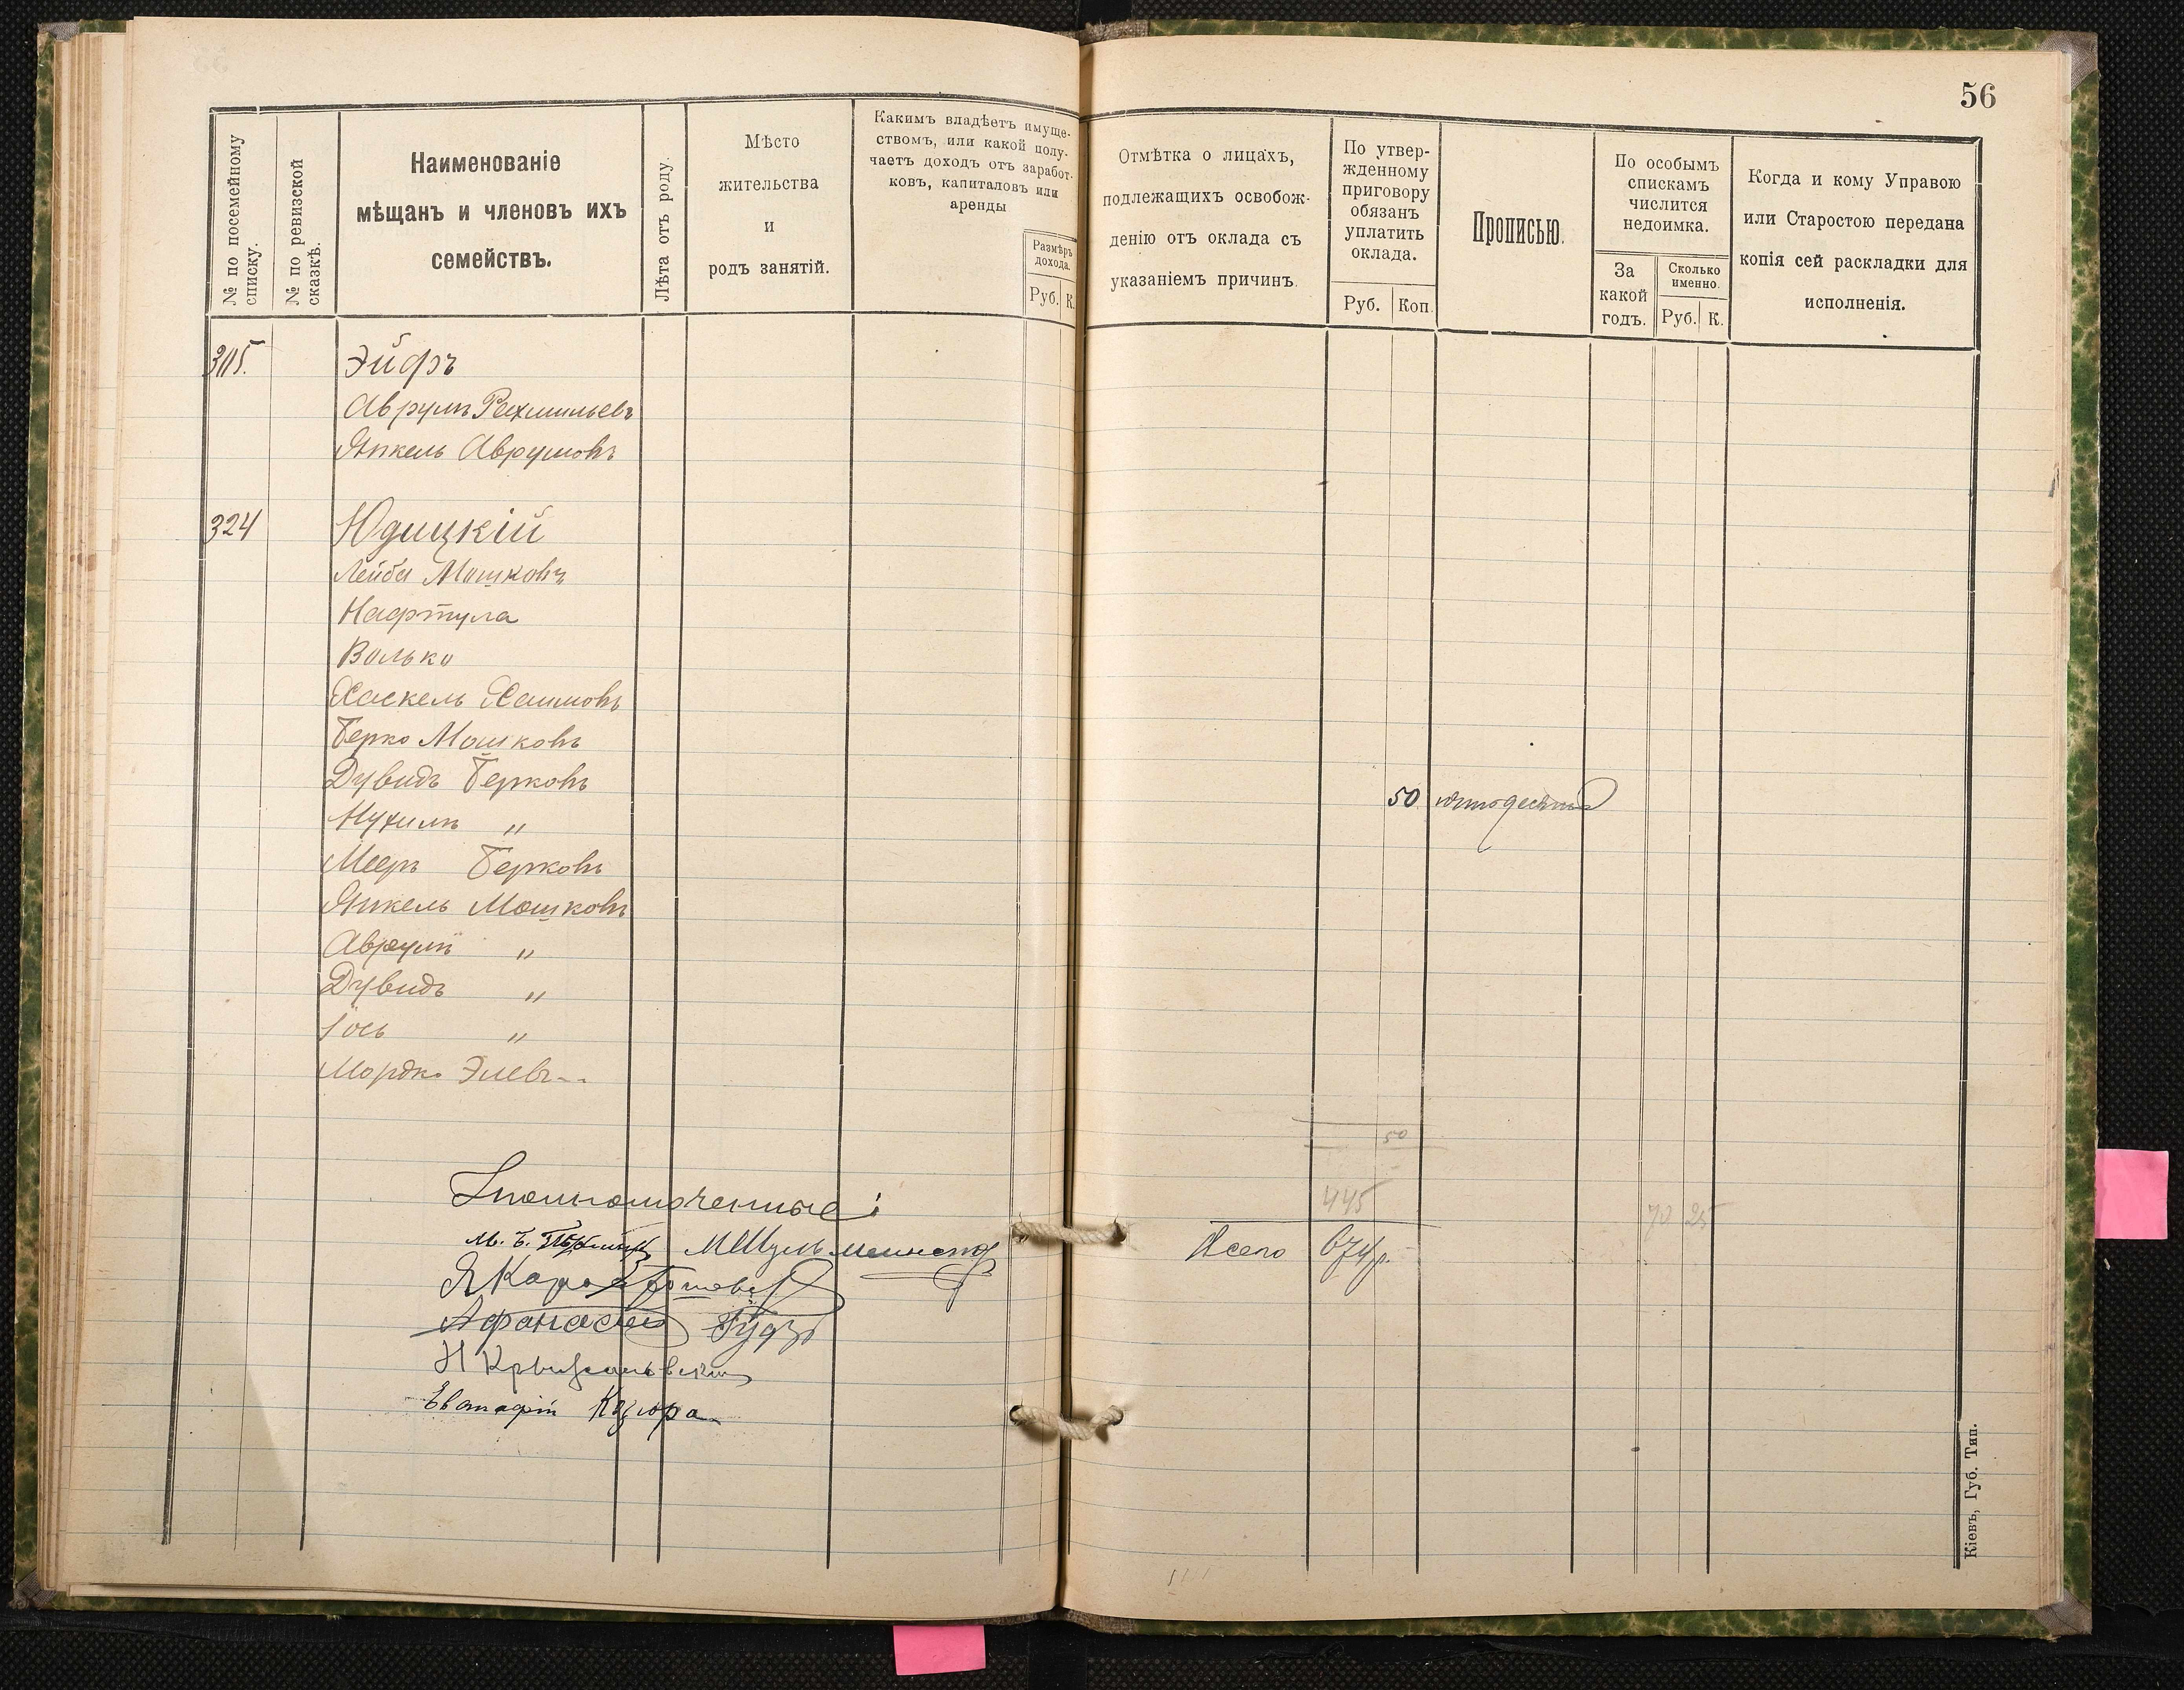 56
№ по посемейному
списку.
№ по ревизской
сказкѣ.
Наименованіе
мѣщанъ и членовъ ихъ
семействъ.
Лѣта отъ роду.
Мѣсто
жительства
и
родъ занятій.
Какимъ владѣетъ имуще-
ствомъ, или какой полу-
чаетъ доходъ отъ заработ-
ковъ, капиталовъ или
аренды
Размѣръ
дохода.
Руб. К.
Отмѣтка о лицахъ,
подлежащихъ освобож-
денію отъ оклада съ
указаніемъ причинъ.
По утвер-
жденному
приговору
обязанъ
уплатить
оклада.
Руб. Коп.
Прописью.
По особымъ
спискамъ
числится
недоимка.
За
какой
годъ.
Сколько
именно.
Руб. К.
Когда и кому Управою
или Старостою передана
копія сей раскладки для
исполненія.
Эйфъ
Аврумъ Рахмильевъ
Янкель Аврумовъ
324 Юдицкій
Лейба Мошковъ
Нафтула
Волько
Хаскель Хаимовъ
Берко Мошковъ
Дувидъ Берковъ
50 пятьдесятъ
Нухимъ "
Мееръ Берковъ
Янкель Мошковъ
Аврумъ "
Дувидъ "
Іось "
Мордко Элевъ
50
Уполномоченные:
445
70 25
Всего 674р.
Афанасій Гудзь
Евстафій Кацюра
Кіевъ, Губ. Тип.